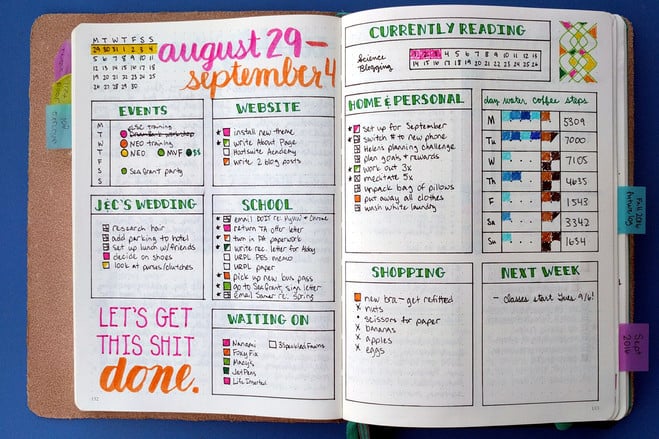 M T W T F S S
29 30 31 1 2 3 4
5 6 7 8 9 10 11
12 13 14 15 16 17 18
19 20 21 22 23 24 25
26 27 28 29 30
august 29 –
september 4
EVENTS
M
T
W
T
F
S
S
training
NEO training
NEO MVF $$
Sea Grant party
WEBSITE
install new theme
write About Page
Hootsuite Academy
write 2 blog posts
J&C'S WEDDING
research hair
add parking to hotel
set up lunch w/friends
decide on shoes
look at purses/clutches
SCHOOL
email DOIT re:
return TA offer letter
turn in PA paperwork
write rec. letter for Abby
URPL PES memo
URPL paper
pick up new bus pass
go to Sea Grant, sign letter
email re: Spring
LET'S GET
THIS SHIT
done.
WAITING ON
Nanami
3 Speckled Fawns
Foxy Fix
Macy's
JetPens
Life Inserted
132
CURRENTLY READING
Science
Blogging
1 2 3 4 5 6 7 8 9 10 11 12 13
14 15 16 17 18 19 20 21 22 23 24 25 26
HOME & PERSONAL
set up for September
switch # to new phone
Helens planning challenge
plan goals & rewards
work out 3x
meditate 5x
unpack bag of pillows
put away all clothes
wash white laundry
day water coffee steps
M 5309
Tu 7000
W 7105
Th 4635
F 1543
Sa 3342
Su 1634
SHOPPING
new bra - get refitted
x nuts
• scissors for paper
x bananas
x apples
x eggs
NEXT WEEK
- Classes start Tues 9/6!
133
Fall 2016
Sept
2016